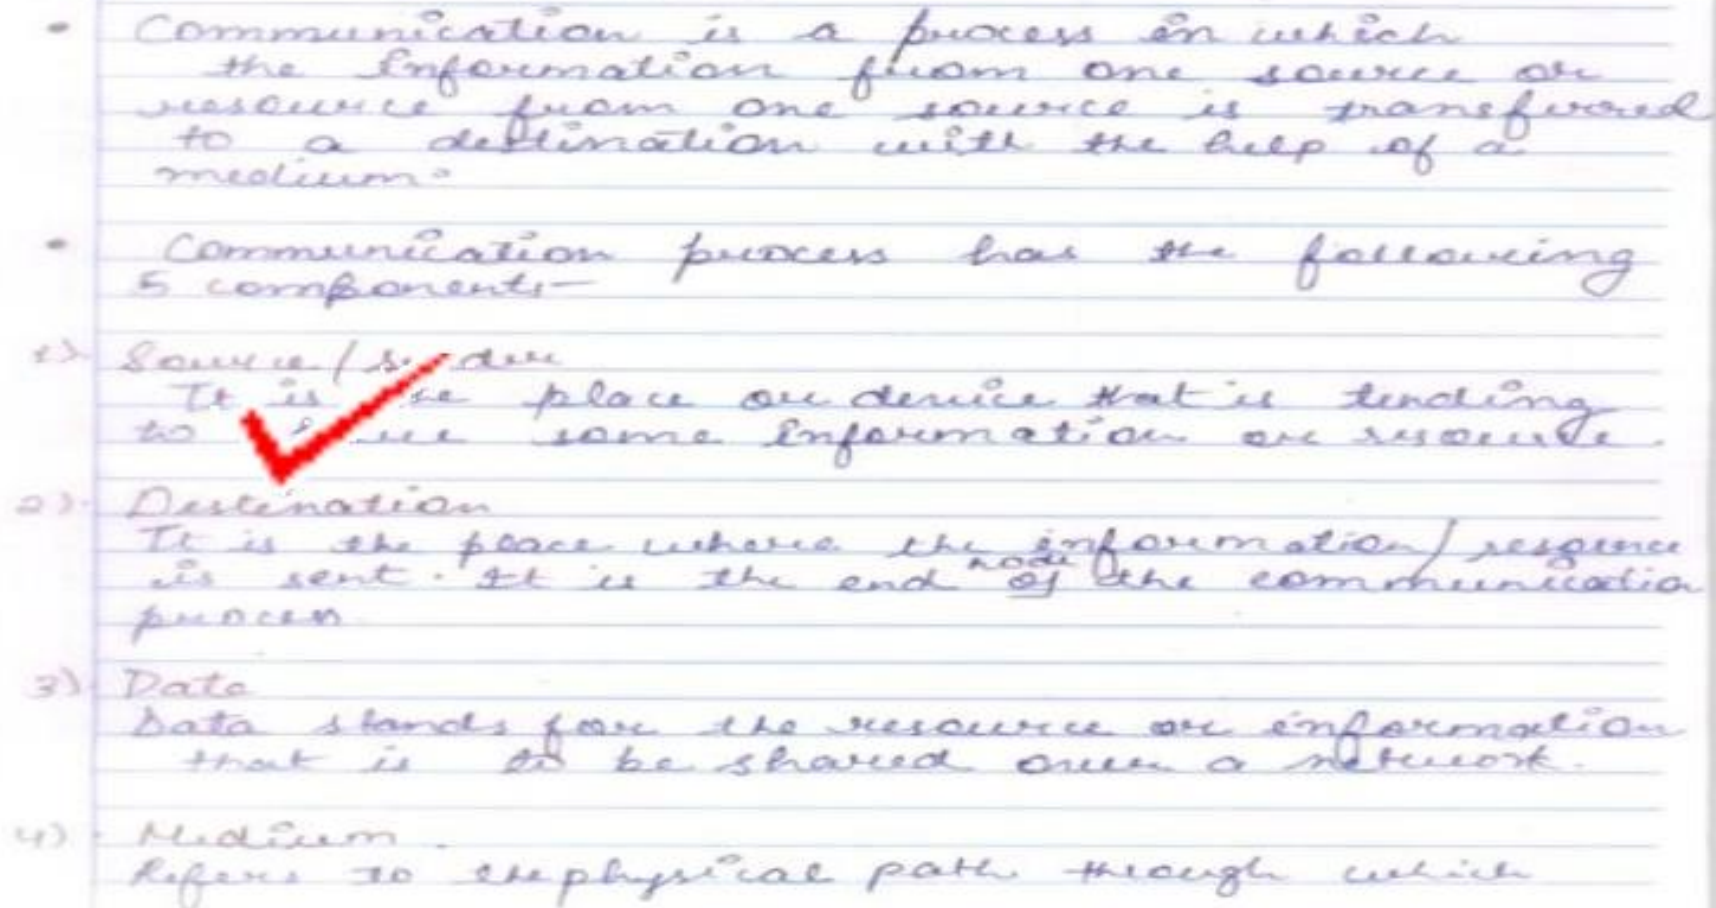 • Communication is a process in which
the Information from one source or
resource from one source is transferred
to a destination with the help of a
medium.
• Communication process has the following
5 components-
1) Source/
It is place or device that is tending
to some information or resource.
2) Destination
It is the place where the information/resource
is sent. It is the end node of the communication
process
3) Data
Data stands for the resource or information
that is to be shared over a network.
4) Medium.
Refers to the physical path through which